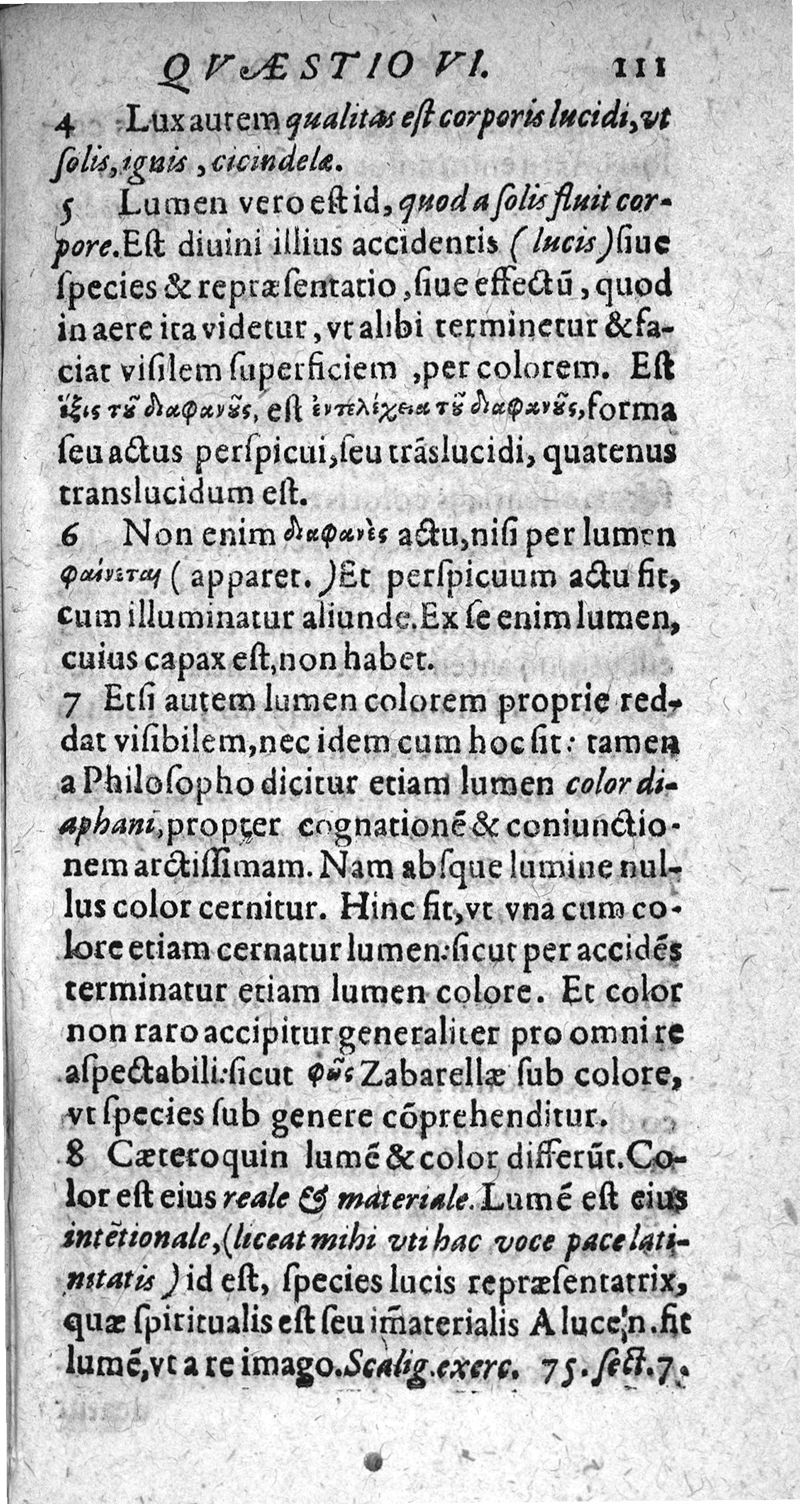 QVÆSTIO VI. 111
4 Lux autem qualitas est corporis lucidi, vt
solis, ignis, cicindelæ.
5 Lumen vero est id, quod a solis fluit cor-
pore. Est diuini illius accidentis (lucis) siue
species & repræsentatio, siue effectū, quod
in aere ita videtur, vt alibi terminetur & fa-
ciat visilem superficiem, per colorem. Est
ἕξις τȣ͂ διαφανȣ͂ς, est ἐντελέχεια τȣ͂ διαφανȣ͂ς, forma
seu actus perspicui, seu trāslucidi, quatenus
translucidum est.
6 Non enim διαφανὲς actu, nisi per lumen
φαίνεται (apparet.) Et perspicuum actu fit,
cum illuminatur aliunde. Ex se enim lumen,
cuius capax est, non habet.
7 Etsi autem lumen colorem proprie red-
dat visibilem, nec idem cum hoc sit: tamen
a Philosopho dicitur etiam lumen color di-
aphani, propter cognationē & coniunctio-
nem arctissimam. Nam absque lumine nul-
lus color cernitur. Hinc fit, vt vna cum co-
lore etiam cernatur lumen: sicut per accidēs
terminatur etiam lumen colore. Et color
non raro accipitur generaliter pro omni re
aspectabili: sicut φῶς Zabarellæ sub colore,
vt species sub genere cōprehenditur.
8 Cæteroquin lumē & color differūt. Co-
lor est eius reale & materiale. Lumē est eius
intētionale, (liceat mihi vti hac voce pace lati-
nitatis) id est, species lucis repræsentatrix,
quæ spiritualis est seu im̄aterialis A luce n. fit
lumē, vt a re imago. Scalig. exerc. 75. sect. 7.